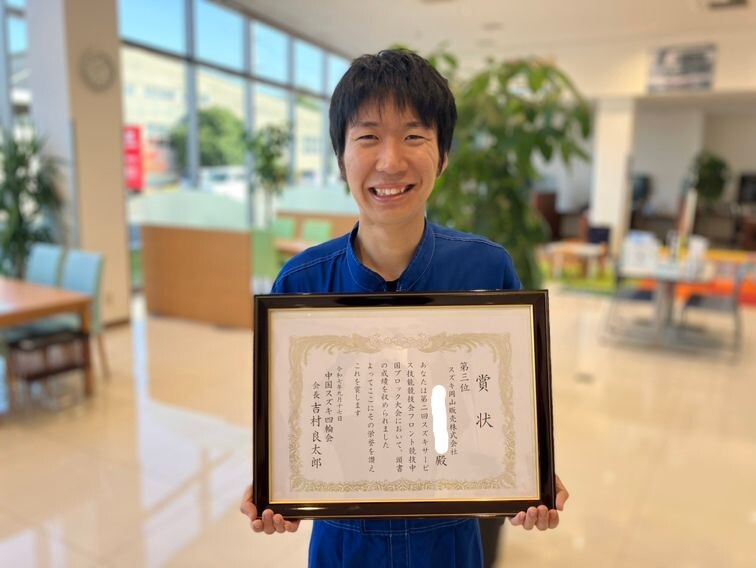 賞状
第三位
スズキ岡山販売株式会社
殿
あなたは第二回スズキサービ
ス技能競技会フロント競技中
国ブロック大会において、頭書
の成績を収められました
よってここにその栄誉を讃え
これを賞します
令和七年九月十七日
中国スズキ四輪会
会長 吉村良太郎